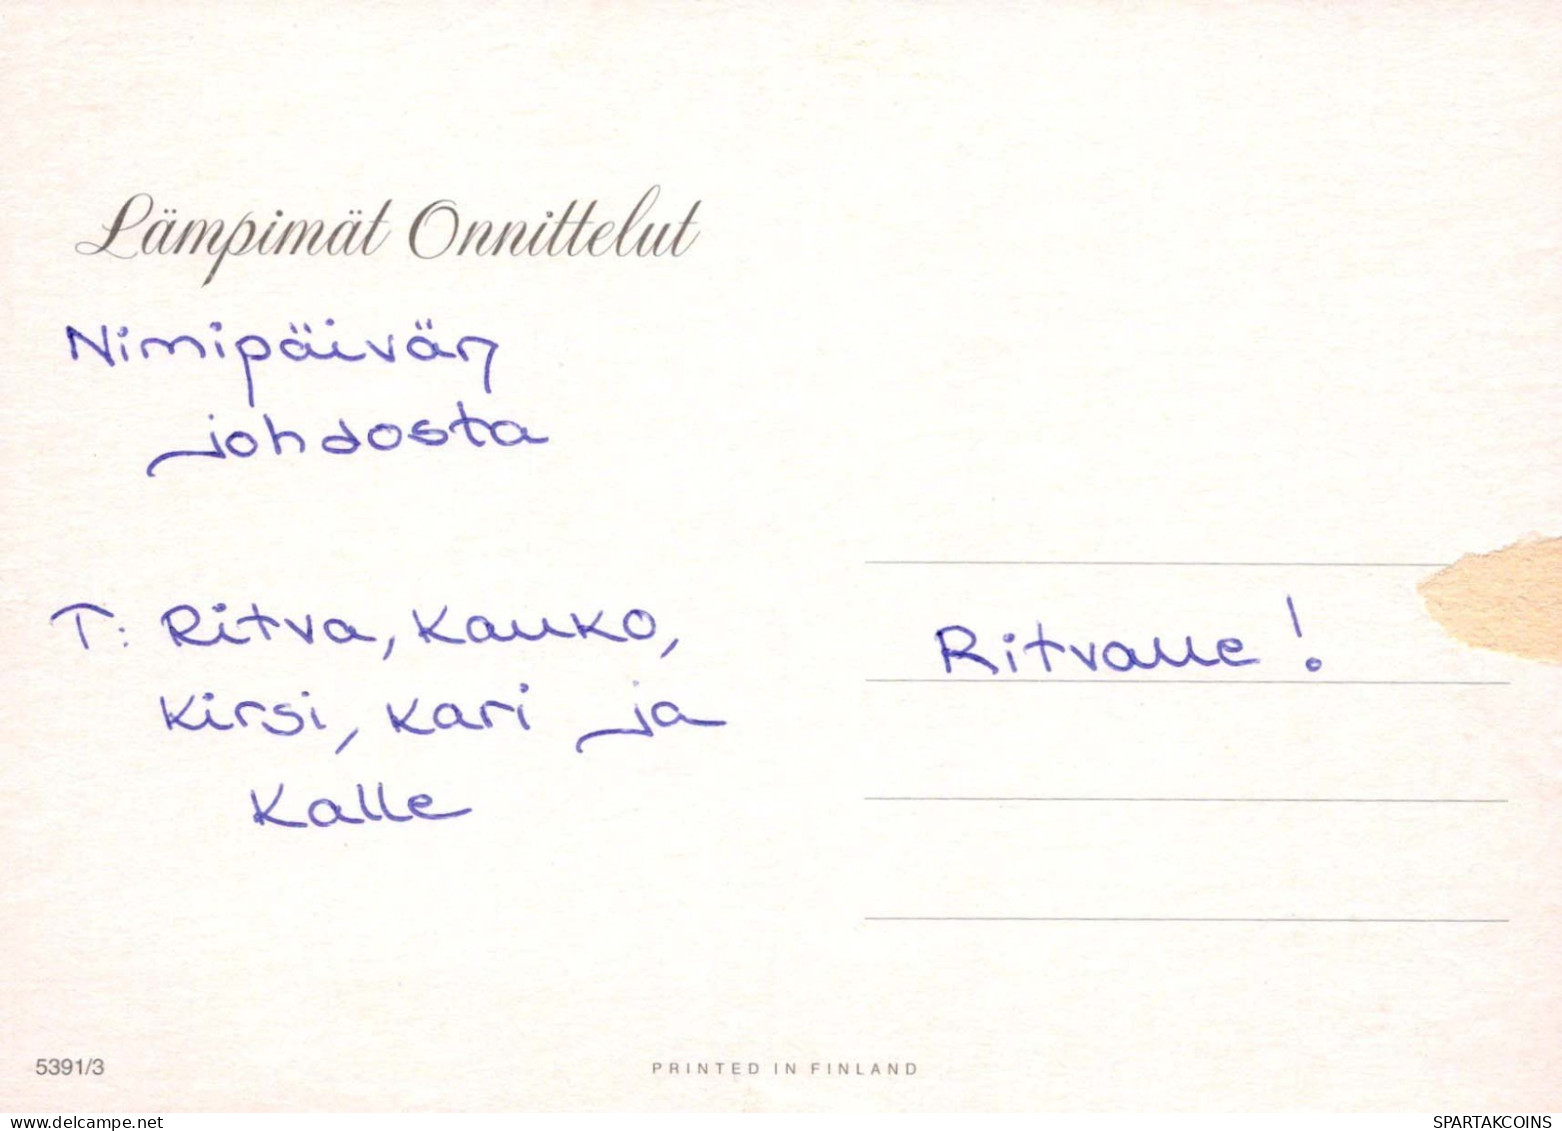 Lämpimät Onnittelut
Nimipäivän
johdosta
T: Ritva, Kauko,
Kirsi, Kari ja
Kalle
Ritvalle!
5391/3
PRINTED IN FINLAND
delcampe.net
SPARTAKCOINS